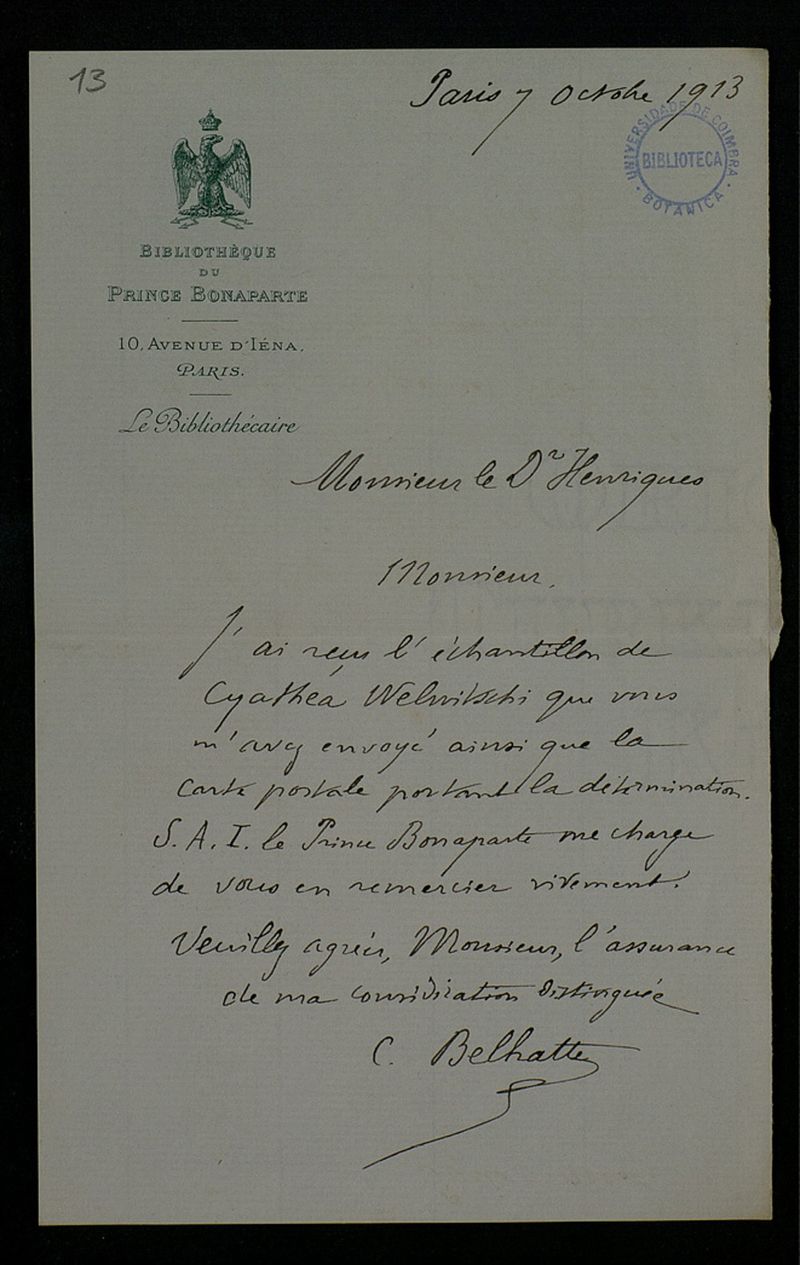 13
Paris 7 Octobre 1913
UNIVERSIDADE DE COIMBRA
BIBLIOTECA
BOTANICA
BIBLIOTHÈQUE
DU
PRINCE BONAPARTE
10, AVENUE D'IÉNA.
PARIS.
Le Bibliothécaire
Monsieur le Dr Henriques
Monsieur,
J'ai reçu l'échantillon de
Cyathéa Welwitschi que vous
m'avez envoyé ainsi que la
carte postale portant la détermination.
S. A. I. le Prince Bonaparte me charge
de vous en remercier vivement.
Veuillez agréer, Monsieur, l'assurance
de ma considération distinguée
C. Belhatte